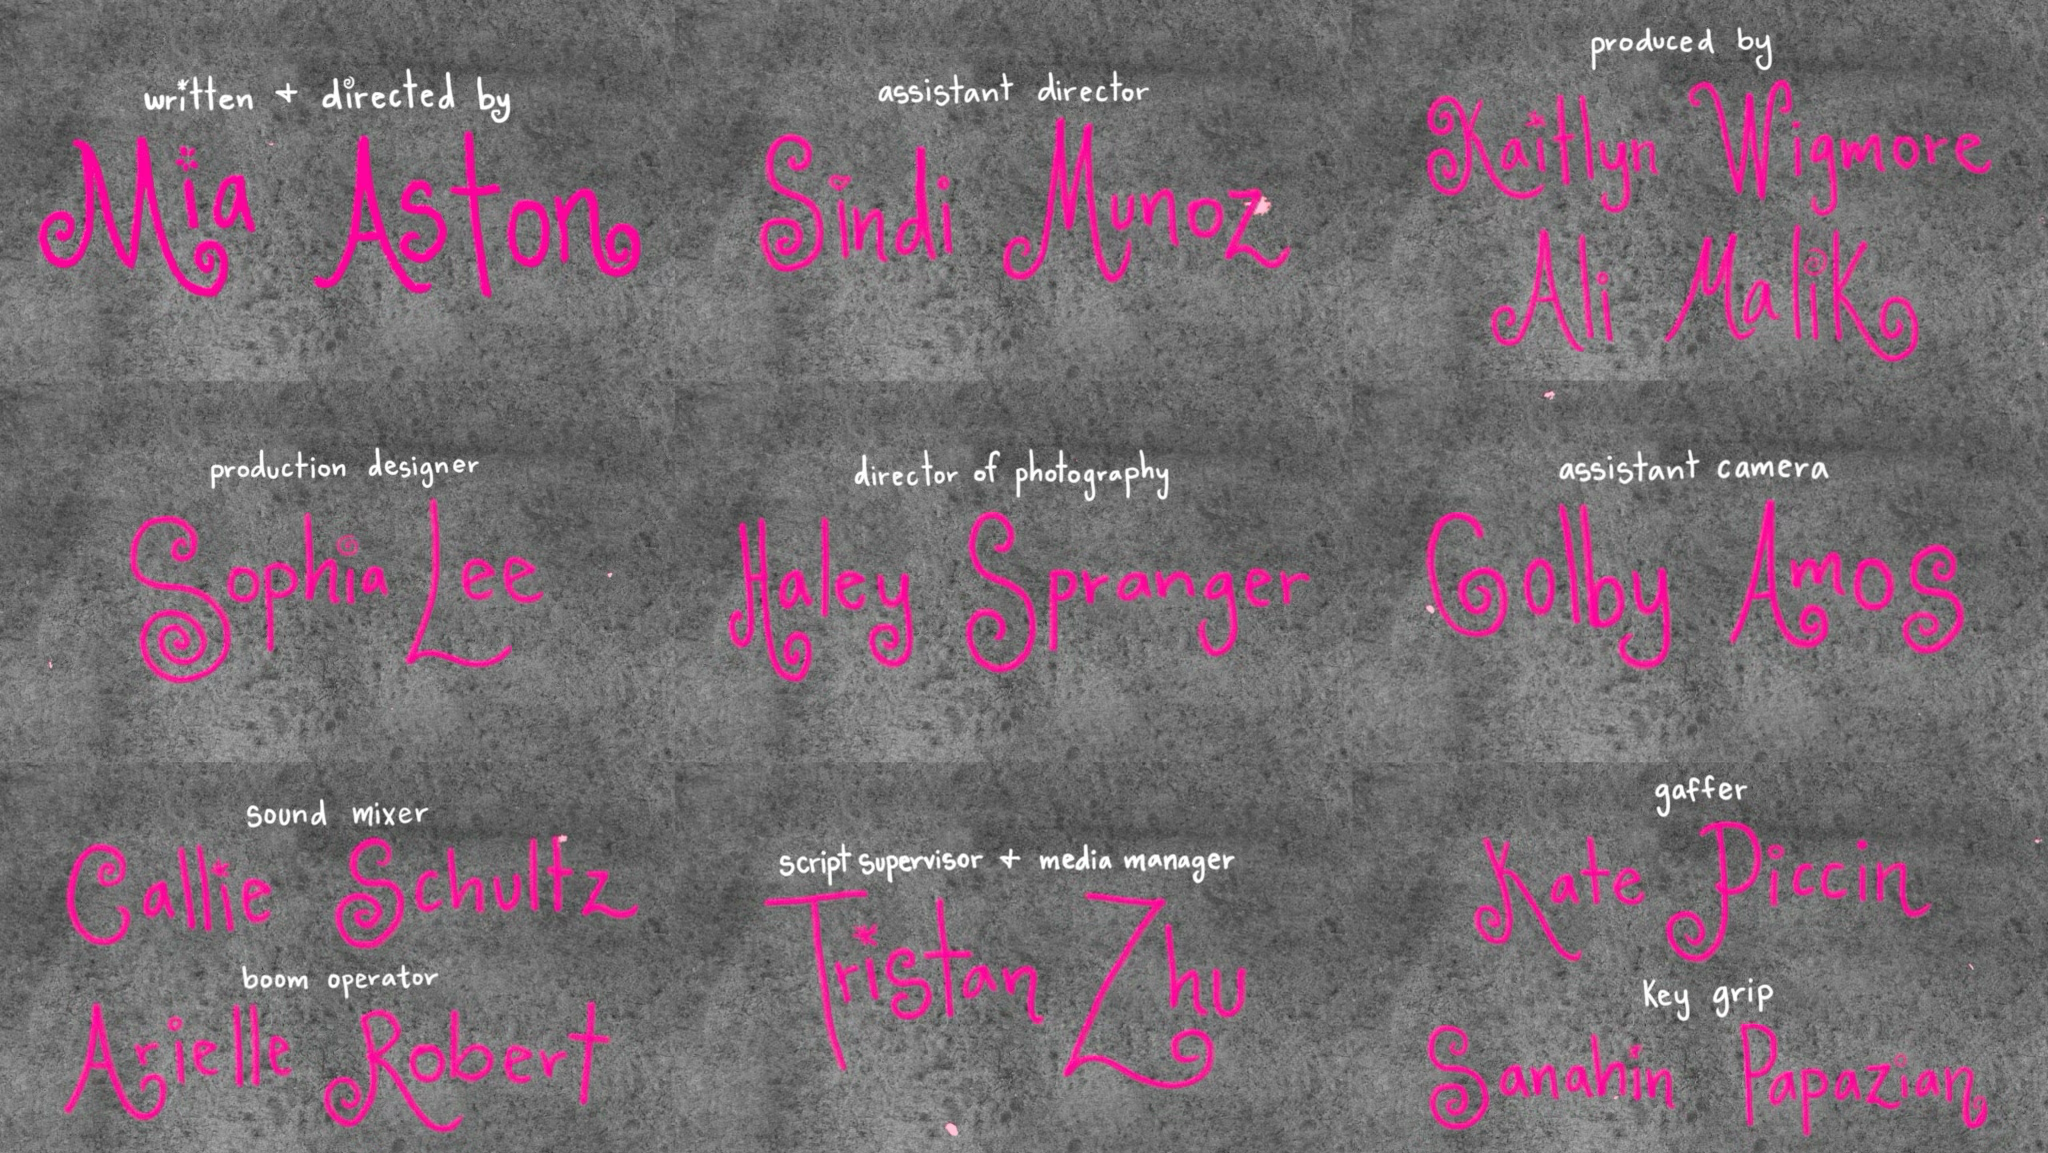 written + directed by
Mia Aston
assistant director
Sindi Munoz
produced by
Kaitlyn Wigmore
Ali Malik
production designer
Sophia Lee
director of photography
Haley Spranger
assistant camera
Colby Amos
sound mixer
Callie Schultz
boom operator
Arielle Robert
script supervisor + media manager
Tristan Zhu
gaffer
Kate Piccin
Key grip
Sanahin Papazian